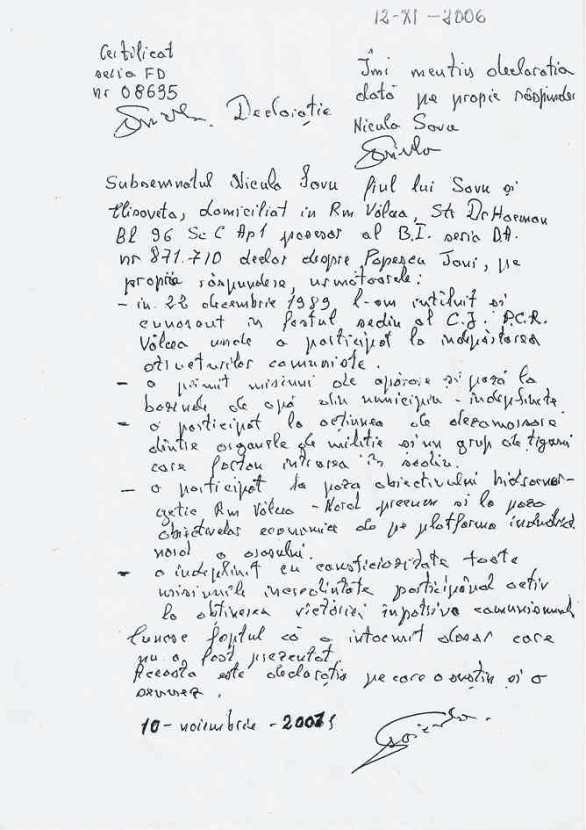 12-XI-2006
Certificat
seria FD
nr 08695
Îmi mențin declarația
dată pe propie răspundere
Nicula Savu
Declarație
Subsemnatul Nicula Savu fiul lui Savu și
Elisaveta, domiciliat în Rm Vâlcea, Str Dr Hacman
Bl 96 Sc C Ap1 posesor al B.I. seria D.A.
nr 871.710 declar despre Popescu Joni, pe
propie răspundere, următoarele:
- în 22 decembrie 1989 l-am întîlnit și
cunoscut în fostul sediu al C.J. P.C.R.
Vâlcea unde a participat la îndepărtarea
structurilor comuniste.
- a primit misiuni de apărare și pază la
bazinele de apă din municipiu - îndeplinite
- a participat la acțiunea de dezarmare
dintre organele de miliție și un grup de țigani
care forțau intrarea în sediu.
- a participat la paza obiectivului hidroener-
getic Rm Vâlcea - Nord precum și la paza
obiectivelor economice de pe platforma industrial
nord a orașului.
- a îndeplinit cu conșticiozitate toate
misiunile încredințate participând activ
la obținerea victoriei împotriva comunismului
Cunosc faptul că a întocmit dosar care
nu a fost prezentat.
Aceasta este declarația pe care o susțin și o
semnez.
10-noiembrie-2005